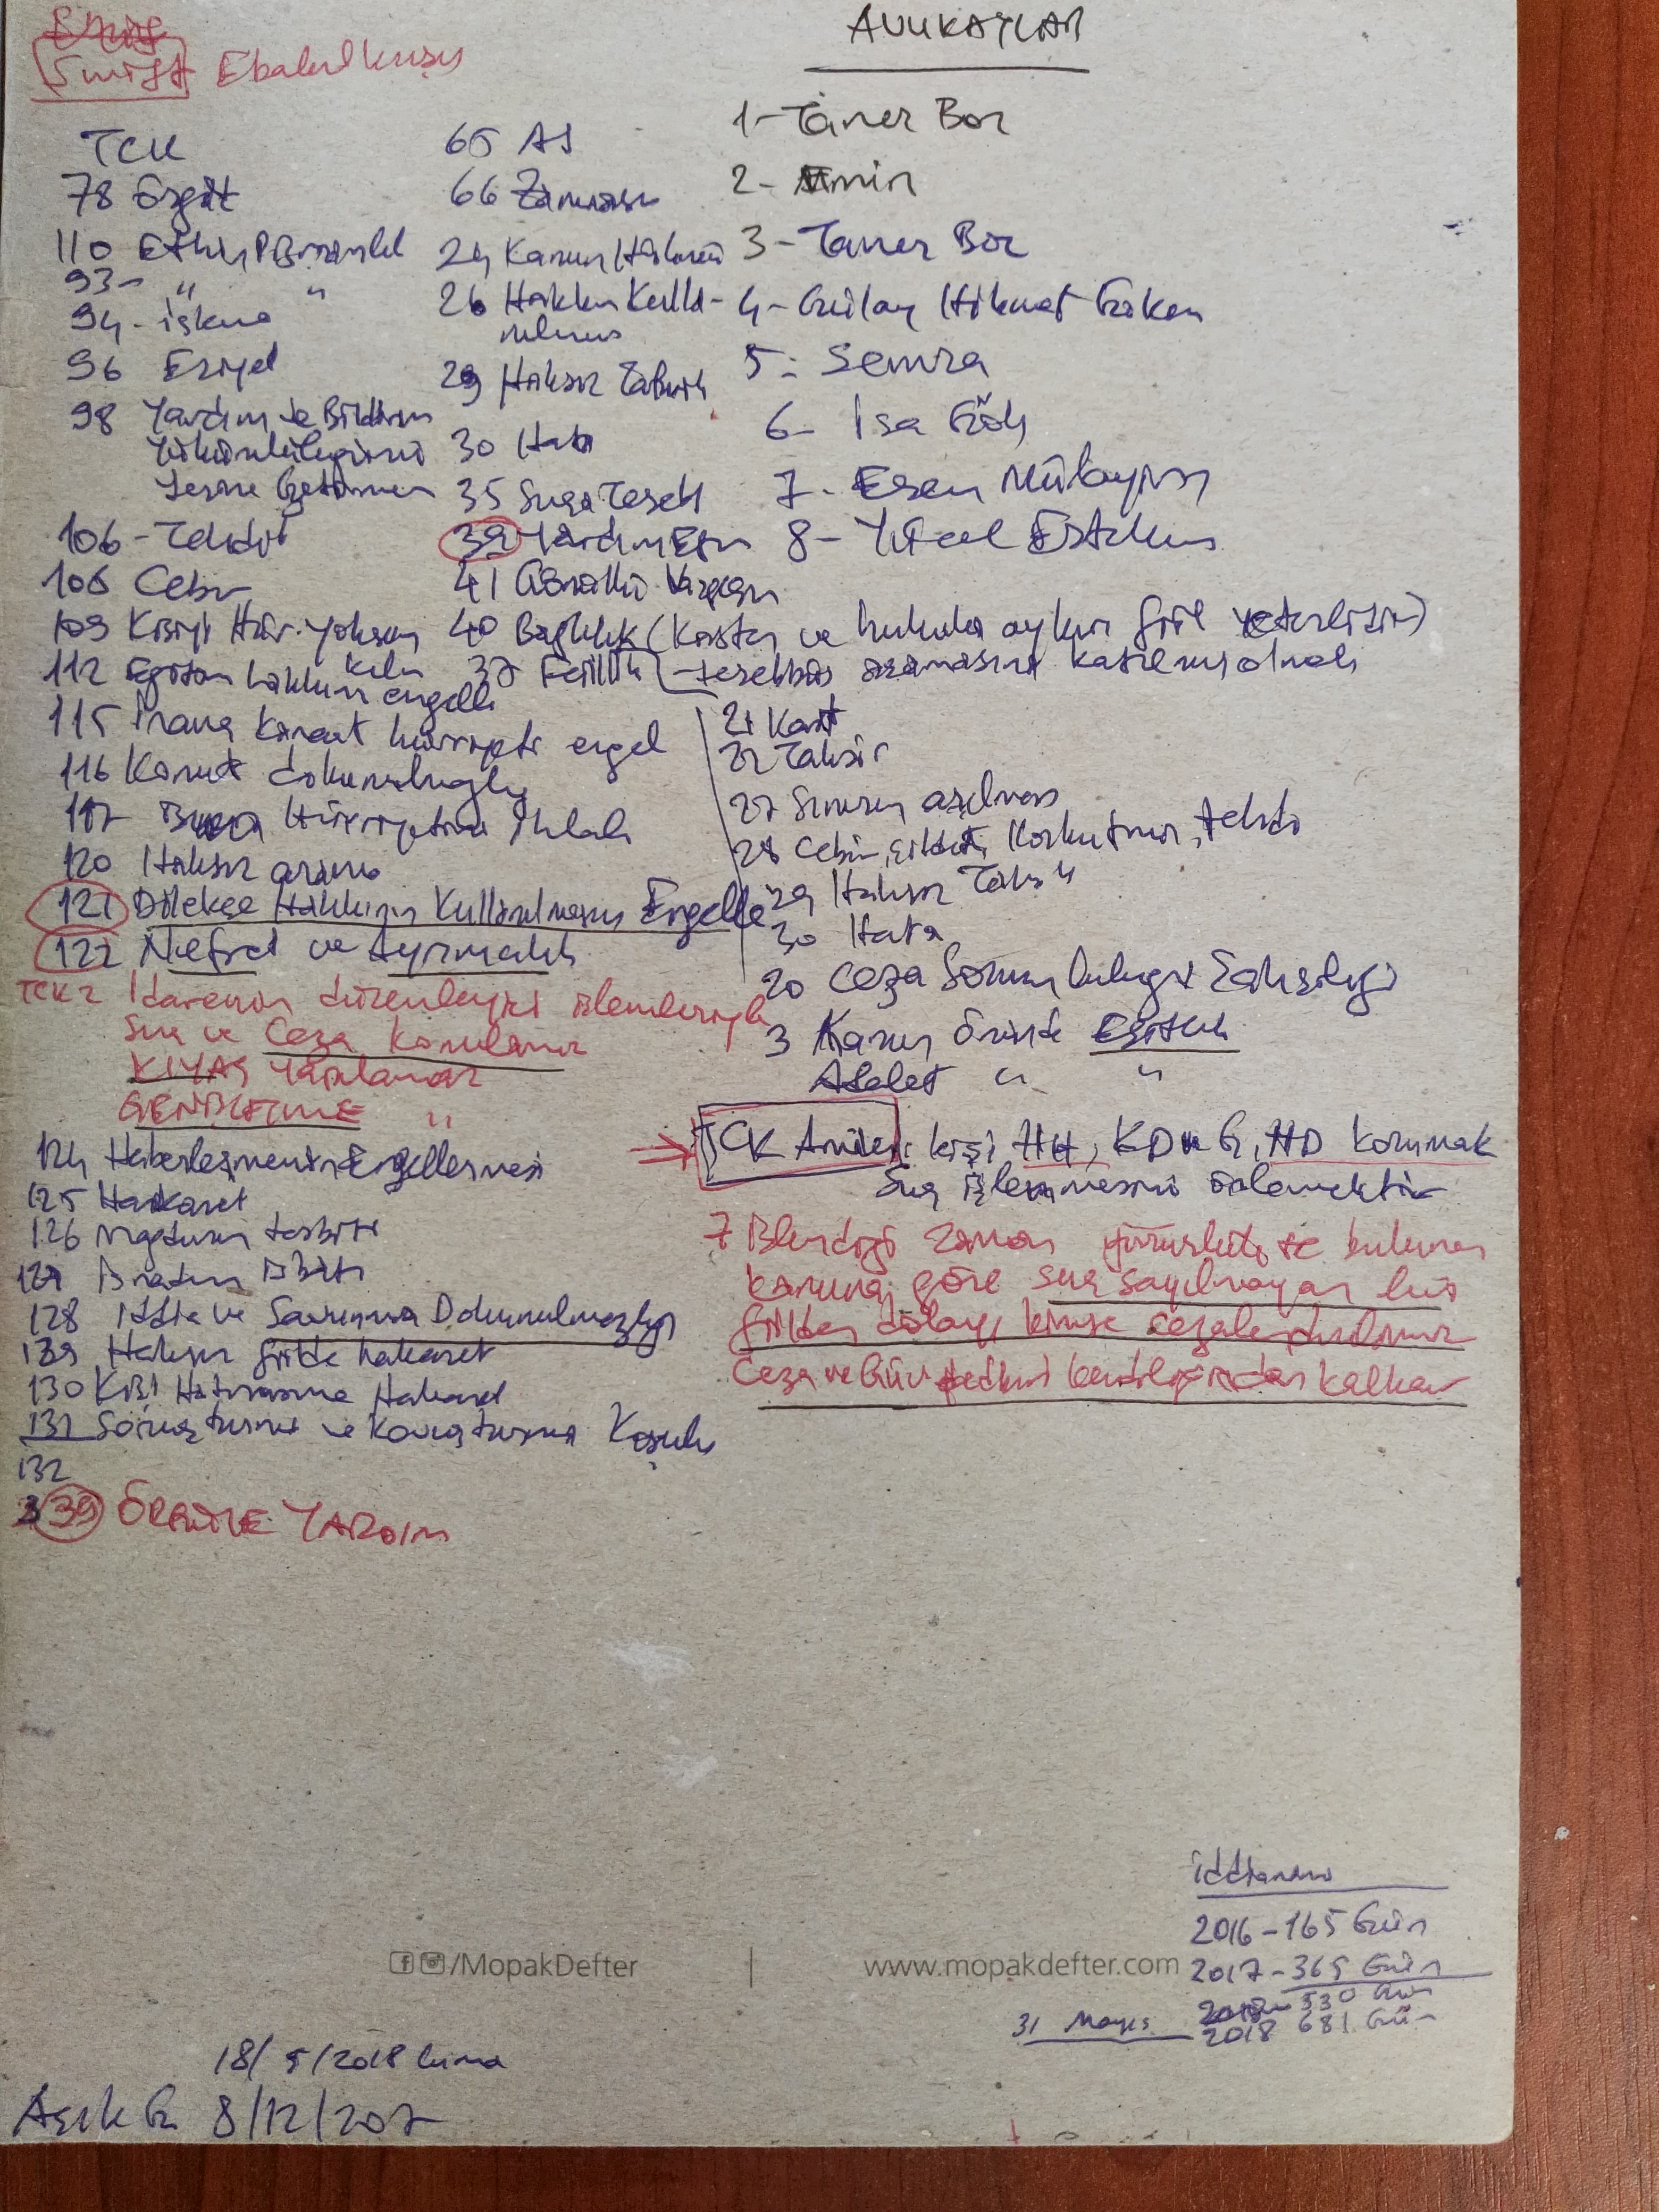 Swift
AVUKATLAR
1- Taner Bor
2- Emin
3- Taner Bor
4- Gülay Hikmet
5- Semra
6- İsa Gök
7- Esen Mülayim
8- Yücel
TCK
78 Örgüt
110 Etkin Pişmanlık
93- " "
94- işkence
96 Eziyet
98 Yardım ve Bildirim
Yükümlülüğünü
Yerine Getirmem
106- Tehdit
108 Cebir
109 Kişiyi Hür. Yoksun
kılm
112 Eğitim hakkın engelle
115 İnanç kanaat hürriyeti engel
116 Konut dokunulmazlığı
117 Hürriyetini İhlali
120 Haksız arama
121 Dilekçe Hakkının Kullanılmasın Engelle
122 Nefret ve Ayrımcılık
TCK 2 İdarenin düzenleyici işlemleriyle
Suç ve Ceza konulamaz
KIYAS Yapılamaz
GENİŞLETME "
124 Haberleşmenin Engellenmesi
125 Hakaret
126 Mağdurun tesbiti
127 İsnadın İsbatı
128 İddia ve Savunma Dokunulmazlığı
129 Haksız fiilde hakaret
130 Kişi Hatırasına Hakaret
131 Soruşturma ve Kovuşturma Koşulu
132
39 ÖRGÜTE YARDIM
65 Af
66 Zamanaşı
24 Kanun Hükmü
26 Hakkın Kulla-
nılması
29 Haksız Tahrik
30 Hata
35 Suça Teşeb
39 Yardım Eden
41 Gönüllü Vazgeçm
40 Bağlılık (Kasten ve hukuka aykırı fiil yeterlidir)
37 Faillik -teşebbüs aşamasına katılmış olmalı
21 Kast
22 Taksir
27 Sınırın aşılması
28 Cebir, şiddet, Korkutma, tehdit
29 Haksız Tahrik
30 Hata
20 Ceza Sorumluluğu Şahsiliği
3 Kanun Önünde Eşitlik
Adalet " "
TCK Amacı: kişi HH, KD ve G, HD korumak
Suç işlenmesini önlemektir
7 İşlendiği zaman yürürlükte bulunan
kanuna göre suç sayılmayan bir
fiilden dolayı kimse cezalandırılmaz
Ceza ve Güv tedbiri kendiliğinden kalkar
iddianame
2016 - 165 Gün
2017 - 365 Gün
530 Gün
31 Mayıs 2018 681 Gün
/MopakDefter | www.mopakdefter.com
18/5/2018 Cuma
Açık G. 8/12/2017